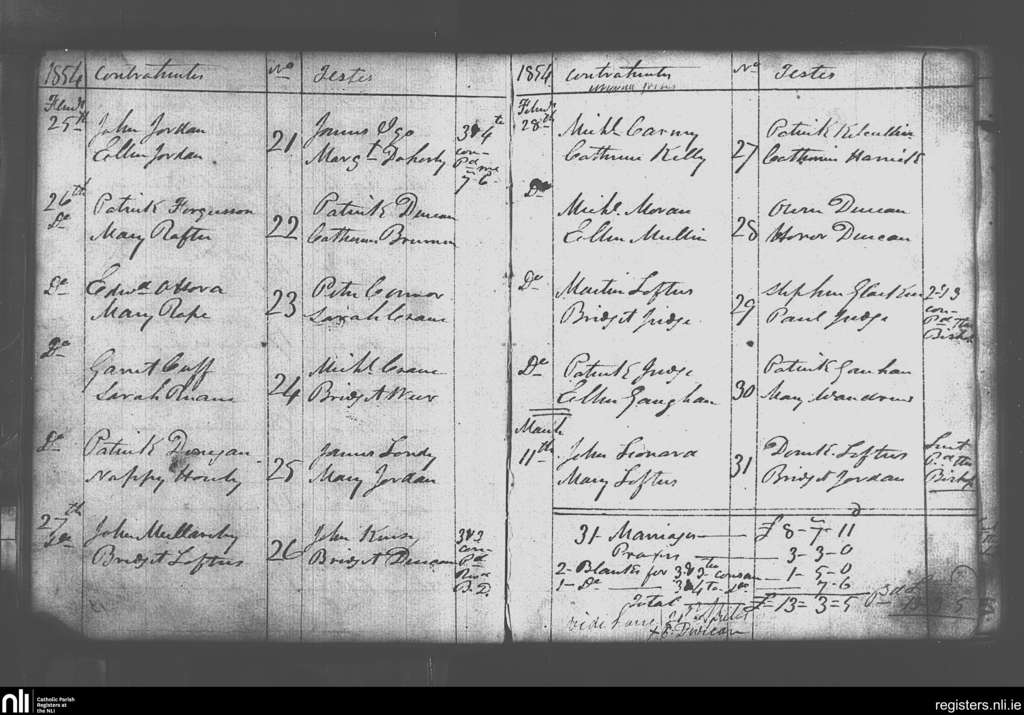 1854 Contrahentes No Testes
Feby
25th John Jordan 21 James Ego 3 & 4th
Ellen Jordan Margt Doherty con-
Pd me
7-6
26th Patrick Fergusson 22 Patrick Duncan
Do Mary Rafter Catherine
Do Edwd 23 Peter Connor
Mary Rape Sarah Crane
Do Garret Cuff 24 Michl Crane
Sarah Ruane Bridget Weir
Do Patrick Dunegan 25 James Londy
Nappy Hourly Mary Jordan
27th John Mullarky 26 John
Do Bridget Loftus Bridget Duncan 3 & 3
con-
Pd
B. D.
1854 Contrahentes No Testes
Feby
28th Michl Carney 27 Patrick Kilcullin
Catherine Kelly Catherine
Do Michl Moran 28 Owen Duncan
Ellen Mullin Honor Duncan
Do Martin Loftus 29 Stephen 2 & 3
Bridget Judge Paul Judge con-
Pd the
Bishop
Do Patrick Judge 30 Patrick Gaughan
Ellen Gaughan Mary
March
11th John 31 Domk. Loftus Lent
Mary Loftus Bridget Jordan Pd the
Bishop
31 Marriages £ 8-7-11
3-3-0
2-Blanks for 3 & 3 consan 1-5-0
1- Do 3 & 4th Do 7-6
Total £ 13=3=5 Pd
Duncan
nli Catholic Parish
Registers at
the NLI
registers.nli.ie